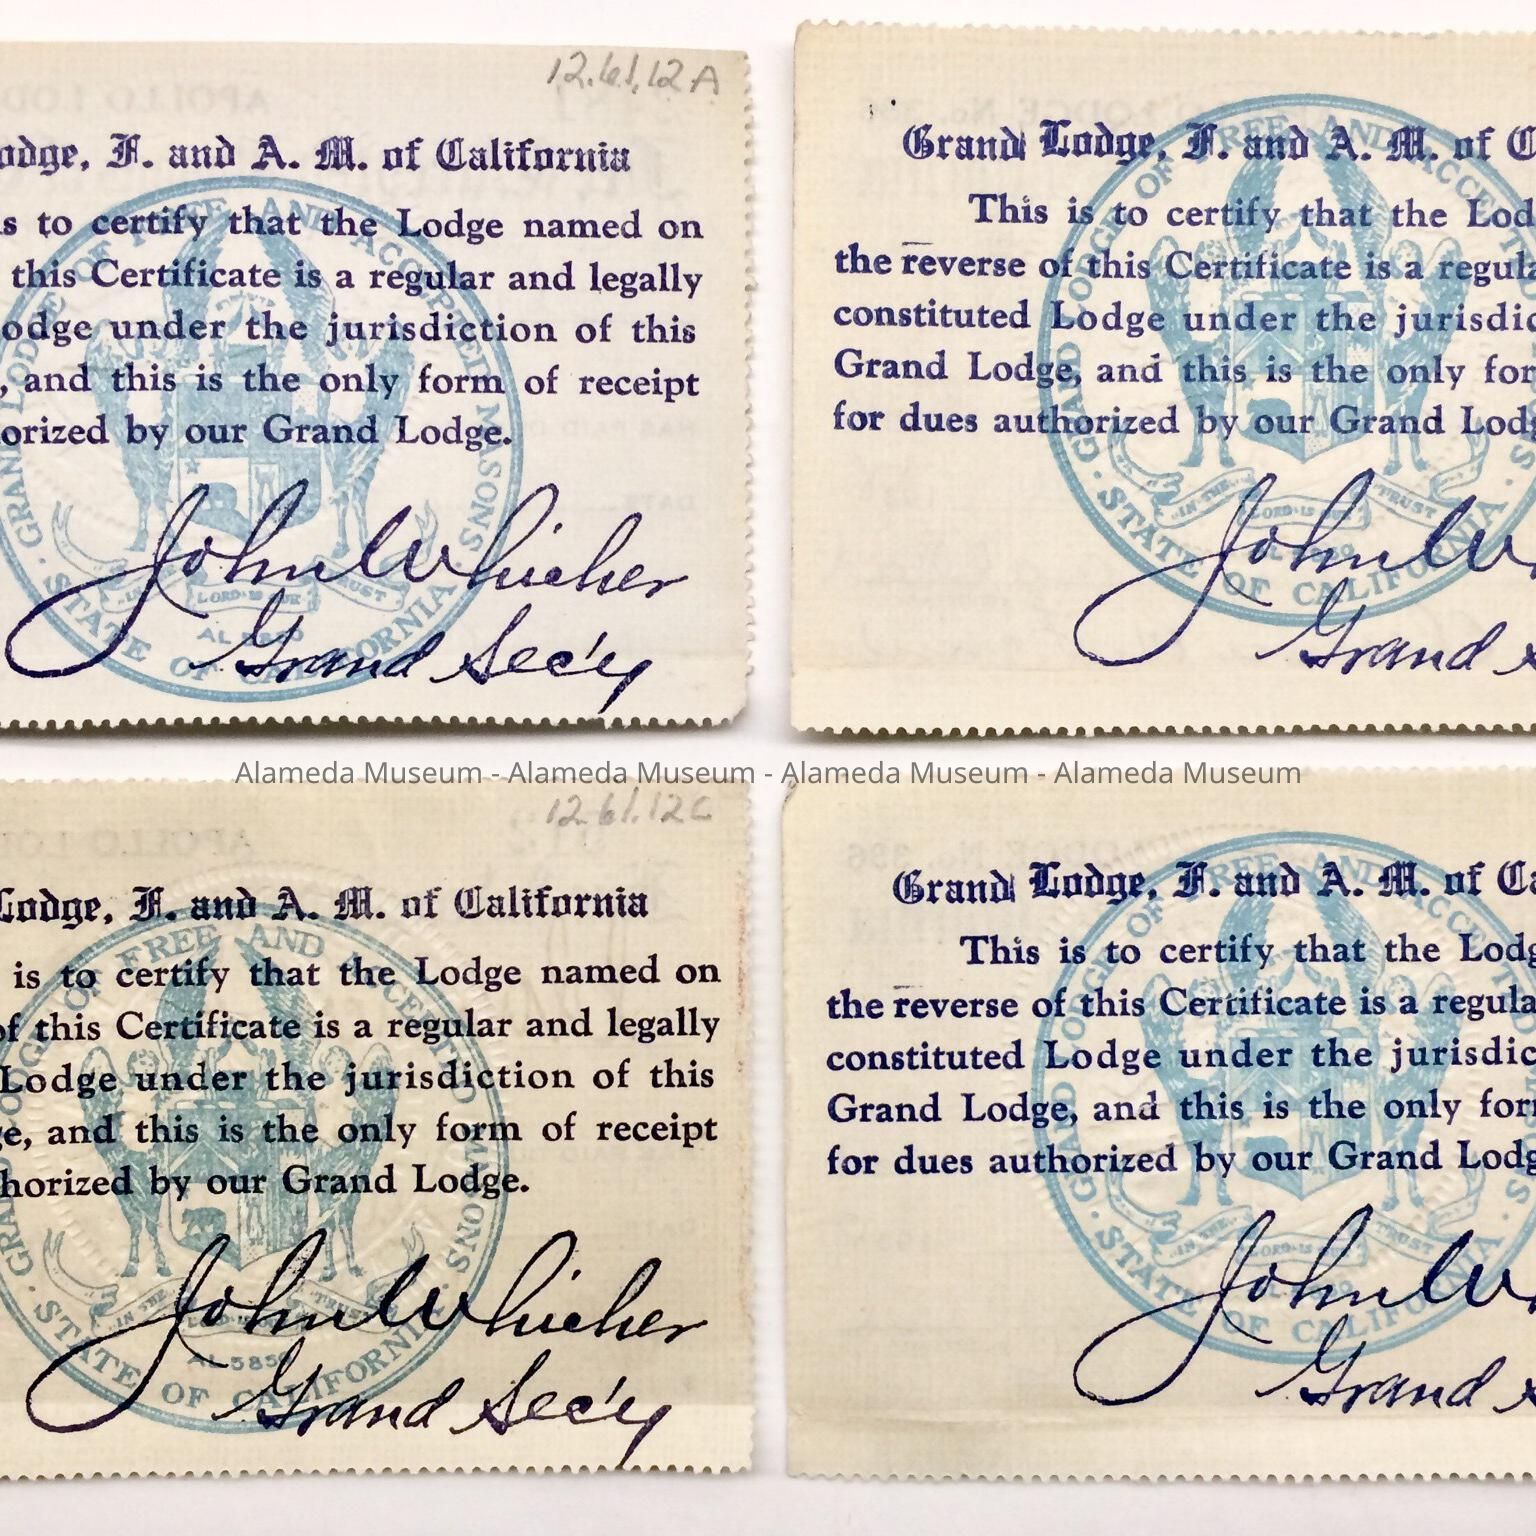 12.61.12A
odge, F. and A. M. of California
s to certify that the Lodge named on
this Certificate is a regular and legally
odge under the jurisdiction of this
, and this is the only form of receipt
orized by our Grand Lodge.
John Whicher
Grand Sec'y
GRAND LODGE OF FREE AND ACCEPTED MASONS
STATE OF CALIFORNIA
Grand Lodge, F. and A. M. of C
This is to certify that the Lod
the reverse of this Certificate is a regula
constituted Lodge under the jurisdic
Grand Lodge, and this is the only for
for dues authorized by our Grand Lodg
John W
Grand S
LODGE OF FREE AND ACCEPT
IN THE LORD IS OUR TRUST
STATE OF CALIFORNIA
Alameda Museum - Alameda Museum - Alameda Museum - Alameda Museum
12.61.12C
Lodge, F. and A. M. of California
is to certify that the Lodge named on
of this Certificate is a regular and legally
Lodge under the jurisdiction of this
ge, and this is the only form of receipt
horized by our Grand Lodge.
John Whicher
Grand Sec'y
FREE AND ACCEPTED MASONS
STATE OF CALIFORNIA
AL 5850
Grand Lodge, F. and A. M. of Ca
This is to certify that the Lodg
the reverse of this Certificate is a regula
constituted Lodge under the jurisdic
Grand Lodge, and this is the only for
for dues authorized by our Grand Lodg
John W
Grand S
LODGE OF FREE AND ACCEPT
STATE OF CALIFORNIA